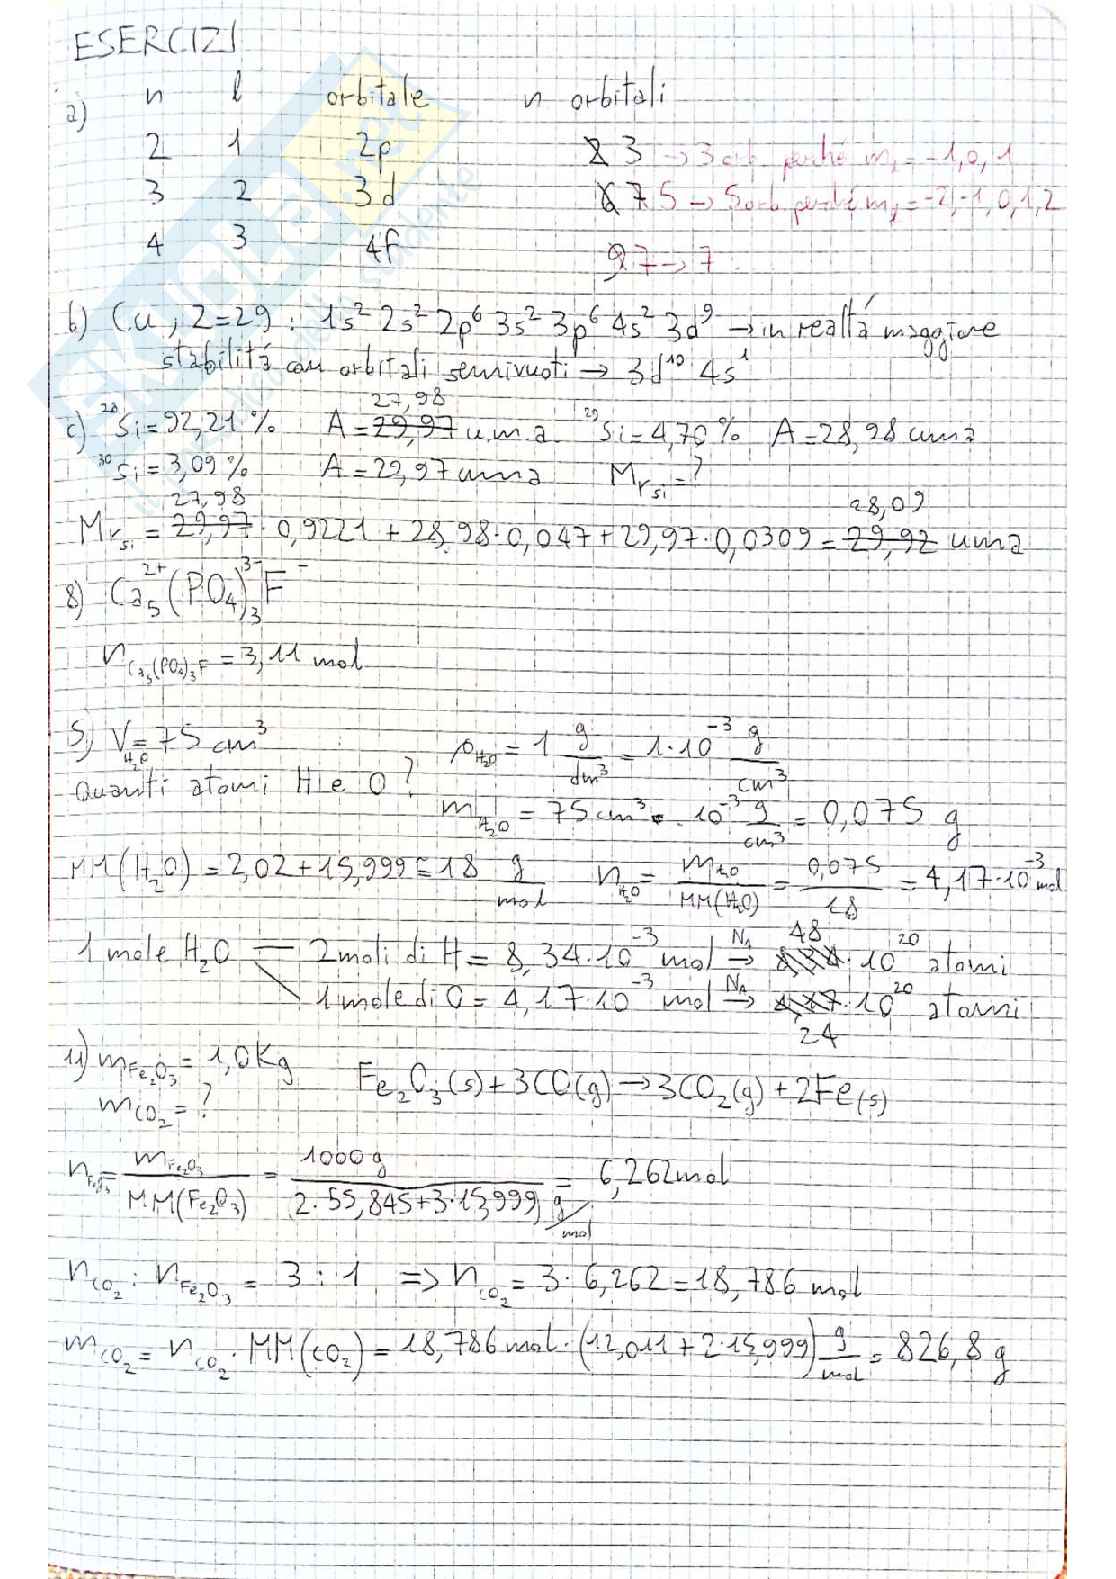 ESERCIZI
a) n l orbitale n orbitali
2 1 2p 3 → 3 orb perché m_l = -1, 0, 1
3 2 3d 5 → 5 orb perché m_l = -2, -1, 0, 1, 2
4 3 4f 7 → 7
b) Cu, Z=29 : 1s² 2s² 2p⁶ 3s² 3p⁶ 4s² 3d⁹ → in realtá maggiore
stabilitá con orbitali semivuoti → 3d¹⁰ 4s¹
c) ²⁸Si = 92,21 % A = 27,98 u.m.a. ²⁹Si = 4,70 % A = 28,98 uma
³⁰Si = 3,09 % A = 29,97 uma Mr_Si = ?
Mr_Si = 27,98 · 0,9221 + 28,98 · 0,047 + 29,97 · 0,0309 = 28,09 uma
8) Ca₅²⁺(PO₄)₃³⁻F⁻
n_Ca₅(PO₄)₃F = 3,11 mol
5) V_H₂O = 75 cm³ ρ_H₂O = 1 g/dm³ = 1·10⁻³ g/cm³
Quanti atomi H e O?
m_H₂O = 75 cm³ · 10⁻³ g/cm³ = 0,075 g
MM(H₂O) = 2,02 + 15,999 = 18 g/mol n_H₂O = m_H₂O/MM(H₂O) = 0,075/18 = 4,17·10⁻³ mol
1 mole H₂O — 2 moli di H = 8,34·10⁻³ mol →(N_A) 48·10²⁰ atomi
1 mole di O = 4,17·10⁻³ mol →(N_A) 24·10²⁰ atomi
11) m_Fe₂O₃ = 1,0 Kg Fe₂O₃(s) + 3CO(g) → 3CO₂(g) + 2Fe(s)
m_CO₂ = ?
n_Fe₂O₃ = m_Fe₂O₃/MM(Fe₂O₃) = 1000 g/(2·55,845+3·15,999) g/mol = 6,262 mol
n_CO₂ : n_Fe₂O₃ = 3 : 1 => n_CO₂ = 3·6,262 = 18,786 mol
m_CO₂ = n_CO₂ · MM(CO₂) = 18,786 mol · (12,011+2·15,999) g/mol = 826,8 g